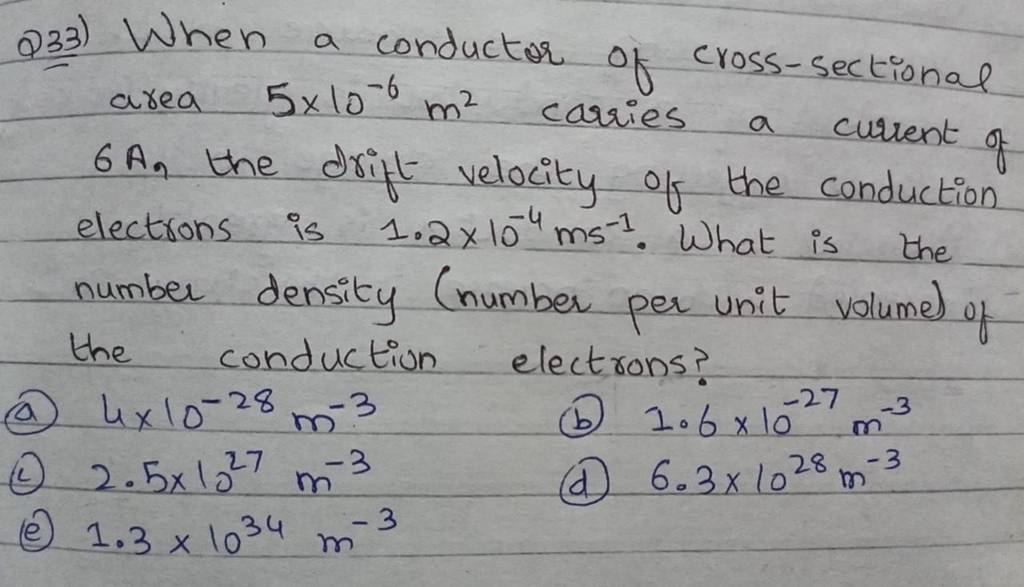 Q33) When a conductor of cross-sectional
area 5×10⁻⁶ m² carries a current of
6A, the drift velocity of the conduction
electrons is 1.2×10⁻⁴ ms⁻¹. What is the
number density (number per unit volume) of
the conduction electrons?
(a) 4×10⁻²⁸ m⁻³ (b) 1.6×10⁻²⁷ m⁻³
(c) 2.5×10²⁷ m⁻³ (d) 6.3×10²⁸ m⁻³
(e) 1.3×10³⁴ m⁻³